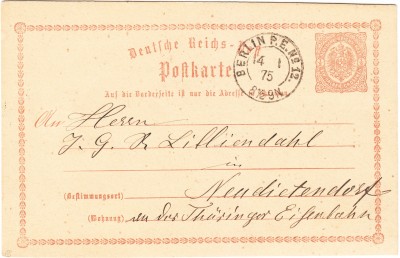 Deutsche Reichs-
Postkarte
BERLIN P.E. No 12.
4 1
75
8½-9N.
Auf die Vorderseite ist nur die Adresse
An Herrn
J. G. R. Lilliendahl
in
(Bestimmungsort) Neudietendorf
(Wohnung) an der Thüringer Eisenbahn